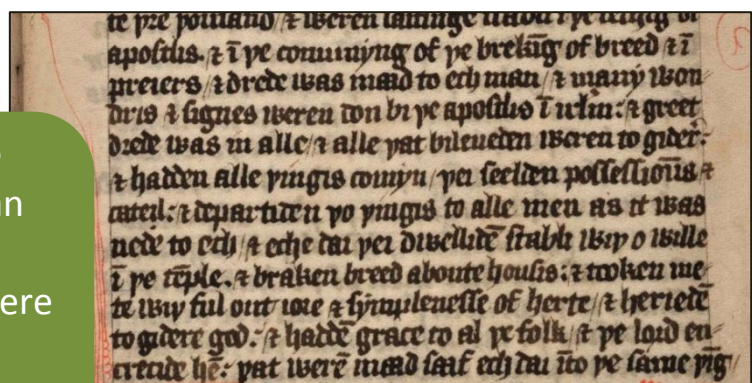 te þre þousand / ⁊ weren lastinge stabli ī þe teching of
apostlis. ⁊ ī þe comunyng of þe brekīg of breed ⁊ ī
preiers / ⁊ drede was maad to ech man / ⁊ many won
dris ⁊ signes weren don bi þe apostlis ī irlm: ⁊ greet
drede was in alle / ⁊ alle þat bileueden weren to gider:
⁊ hadden alle þingis comyn / þei seelden possessioūs ⁊
cateil: ⁊ departiden þo þingis to alle men as it was
nede to ech / ⁊ eche dai þei dwellidē stabli wiþ o wille
ī þe tēple. ⁊ braken breed aboute housis: ⁊ token me
te wiþ ful out ioie ⁊ symplenesse of herte / ⁊ herieden
to gidere god: ⁊ haddē grace to al þe folk / ⁊ þe lord en
creside hē: þat werē maad saaf ech dai īto þe same þīg
an
ere